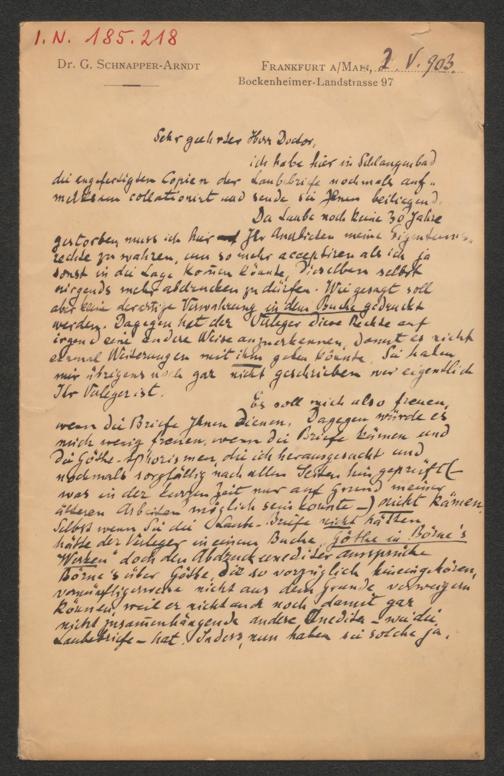 I. N. 185.218
Dr. G. Schnapper-Arndt
Frankfurt a/Main, 2. V. 903.
Bockenheimer-Landstrasse 97
Sehr geehrter Herr Doctor,
ich habe hier in Schlangenbad
die angefertigten Copien der Laubebriefe nochmals auf-
merksam collationirt und sende sie Ihnen beiliegend.
Da Laube noch keine 30 Jahre
gestorben, muss ich hier Ihr meine Eigentums-
rechte zu wahren, um so mehr acceptiren als ich ja
sonst in die Lage kommen könnte, Dieselben selbst
nirgends mehr abdrucken zu dürfen. Wie gesagt soll
aber keine derartige Verwahrung in dem Buche gedruckt
werden. Dagegen hat der Verleger diese Rechte auf
irgend eine andere Weise anzuerkennen, damit es nicht
einmal Weiterungen mit ihm geben könnte. Sie haben
mir übrigens noch gar nicht geschrieben wer eigentlich
Ihr Verleger ist.
Es soll mich also freuen,
wenn die Briefe Ihnen dienen. Dagegen würde es
mich wenig freuen, wenn die Briefe kämen und
die Göthe-Aphorismen, die ich herausgesucht und
nochmals sorgfältig nach allen Seiten hin geprüft (–
was in der kurzen Zeit nur auf Grund meiner
älteren Arbeiten möglich sein konnte –) nicht kämen.
Selbst wenn Sie die Laube-Briefe nicht hätten
hätte der Verleger in einem Buche „Göthe in Börne's
Werken" doch den Abdruck unedirter Aussprüche
Börne's über Göthe, die so vorzüglich hineingehören,
vernünftigerweise nicht aus dem Grunde verweigern
können, weil er nicht auch noch damit gar
nicht zusammenhängende andere Inedita – wie die
Laubebriefe – hat. Indess, nun haben sie solche ja.